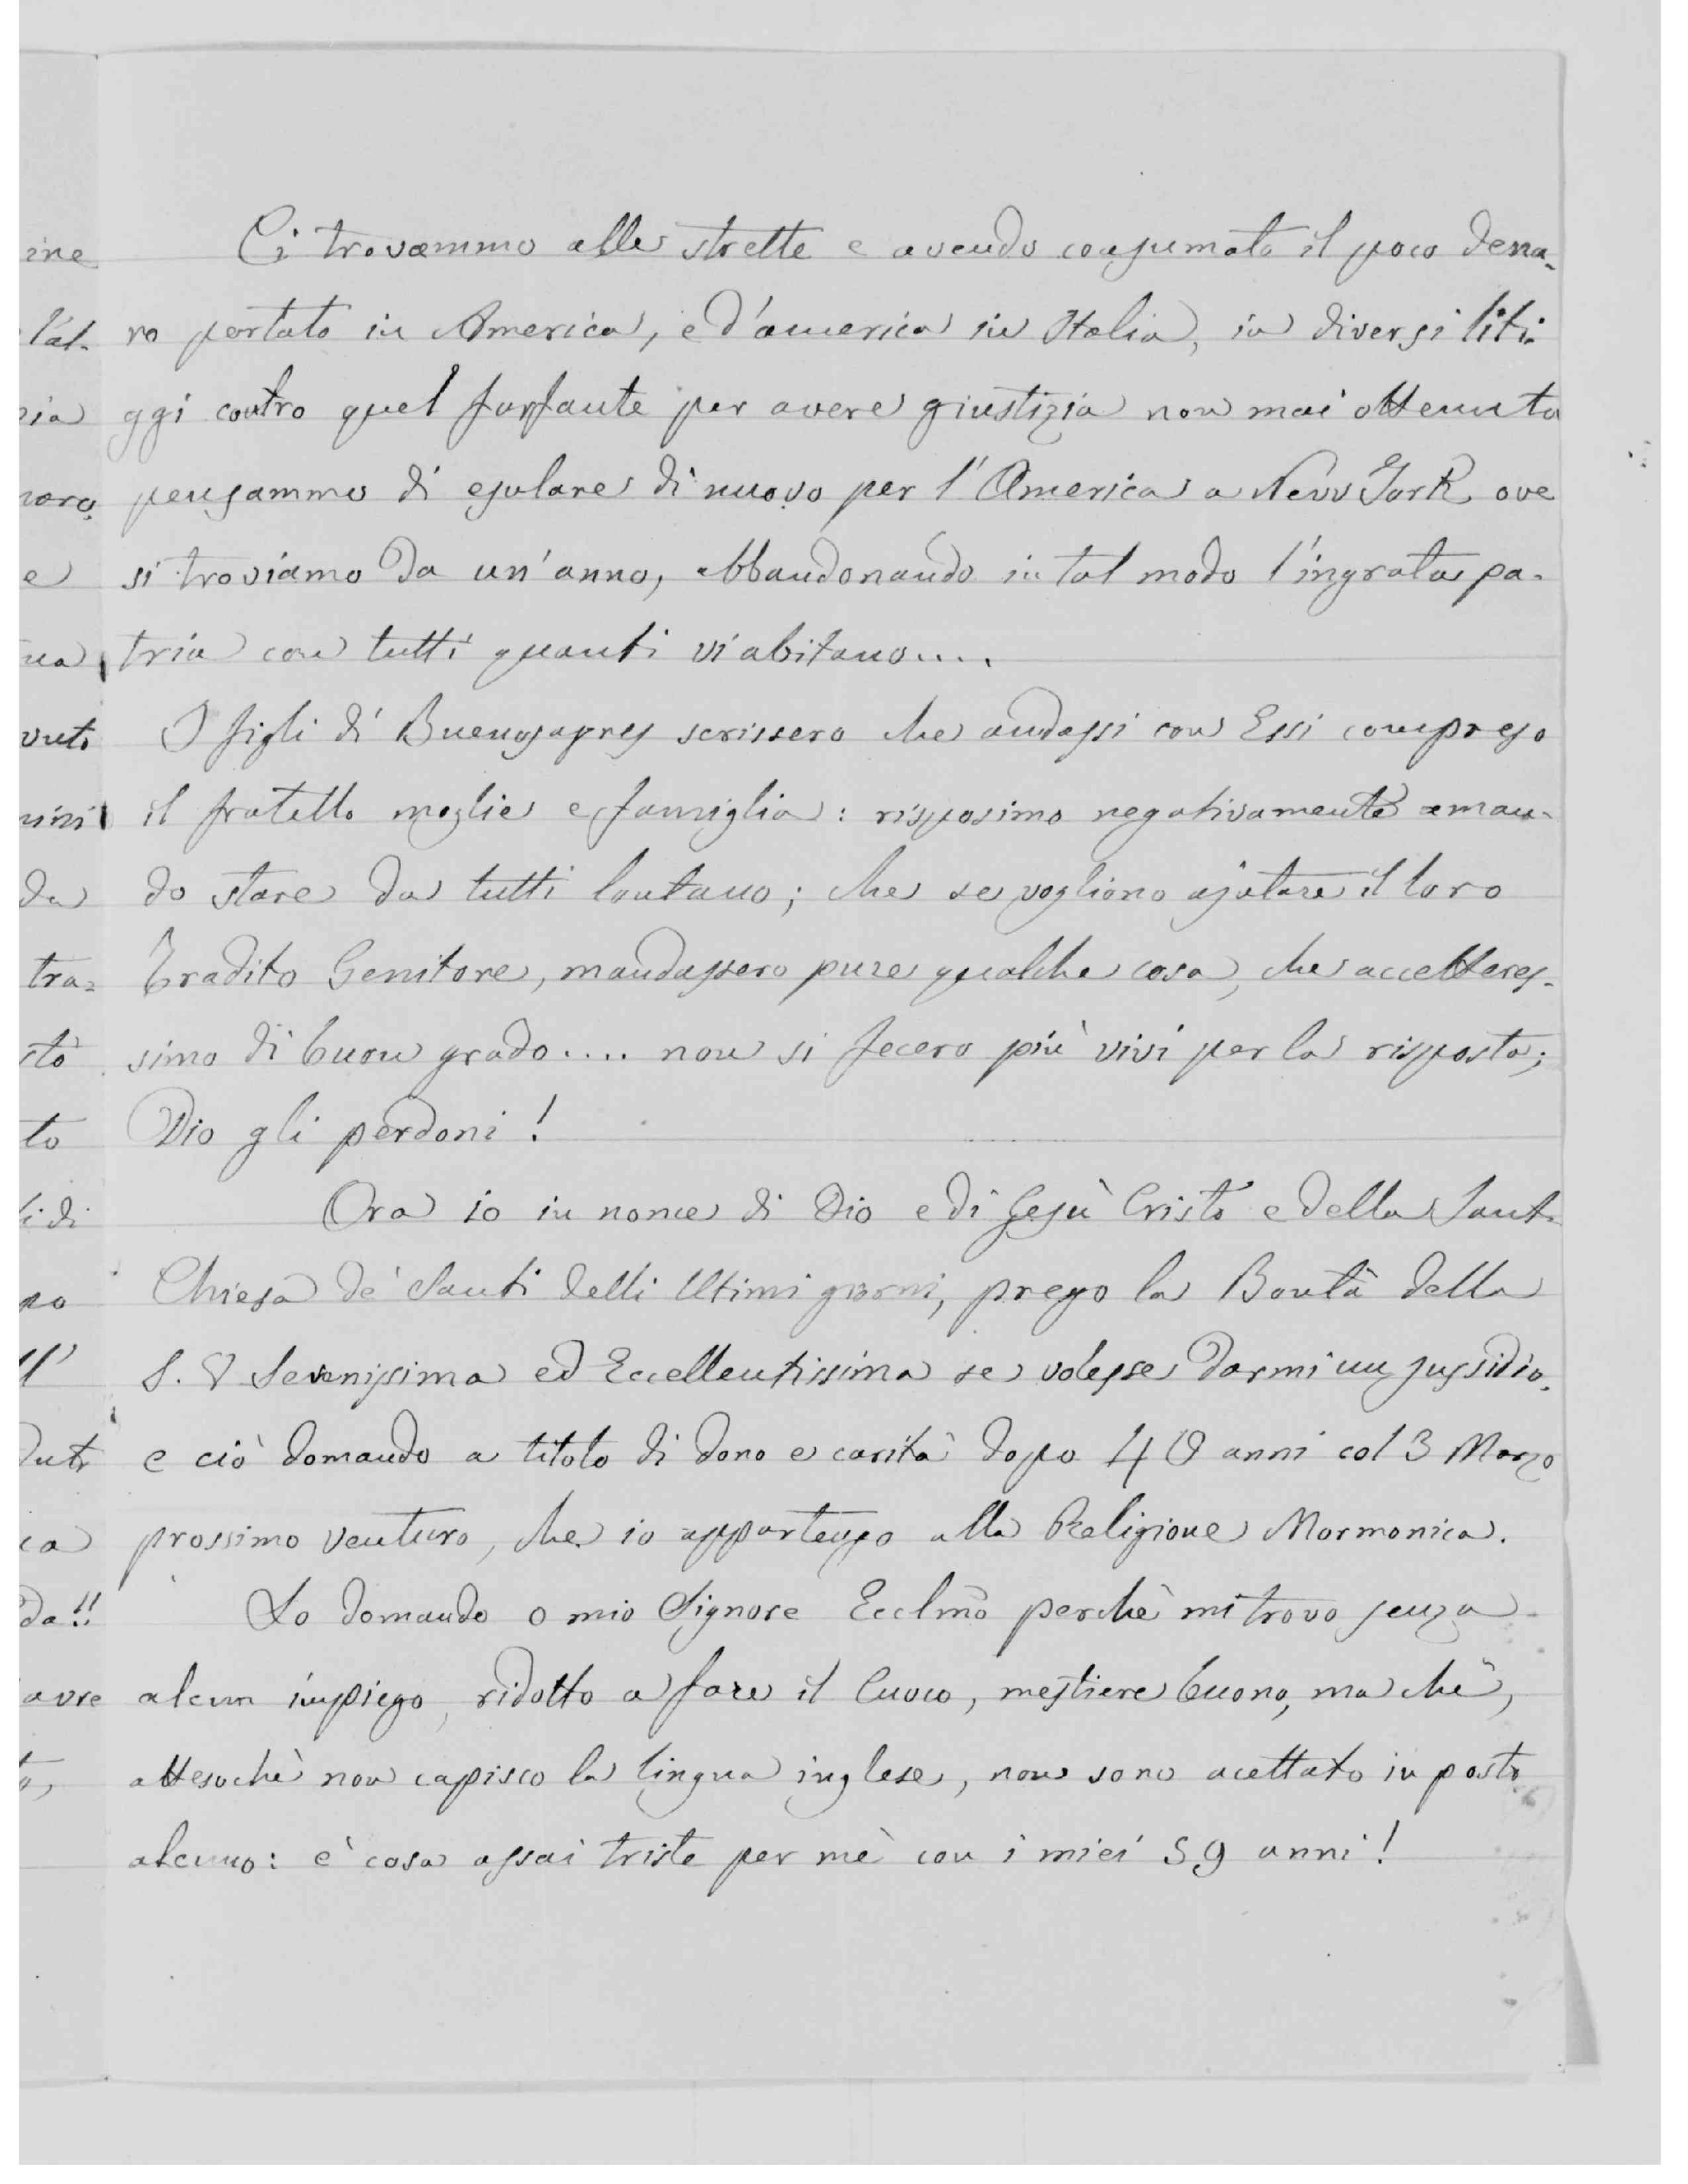 Ci trovammo alle strette e avendo consumato il poco dena-
ro portato in America, e d'america in Italia, in diversi liti-
ggi contro quel furfante per avere giustizia non mai ottenuta
pensammo di esulare di nuovo per l'America a Newv York ove
si troviamo da un'anno, abbandonando in tal modo l'ingrata pa-
tria con tutti quanti vi abitano....
I figli di Buenosayres scrissero che andassi con Essi compreso
il fratello moglie e famiglia: risposimo negativamente aman-
do stare da tutti lontano; che se vogliono ajutare il loro
Tradito Genitore, mandassero pure qualche cosa, che accetteres-
simo di buon grado.... non si fecero più vivi per la risposta;
Dio gli perdoni!
Ora io in nome di Dio e di Gesù Cristo e della Sant.
Chiesa de' Santi delli Ultimi giorni, prego la Bontà della
S. V Serenissima ed Eccellentissima se volesse darmi un sussidio.
e ciò domando a titolo di dono e carità dopo 40 anni col 3 Marzo
prossimo venturo, che io appartengo alla Religione Mormonica.
Lo domando o mio Signore Ecclmo perchè mi trovo senza
alcun impiego, ridotto a fare il Cuoco, mestiere buono, ma chè,
attesochè non capisco la lingua inglese, non sono acettato in posto
alcuno: è cosa assai triste per mè con i miei 59 anni!
ine
l'al-
ia
e
vuto
da
tra-
stò
to
di
no
ll'
ca
da!!
avre